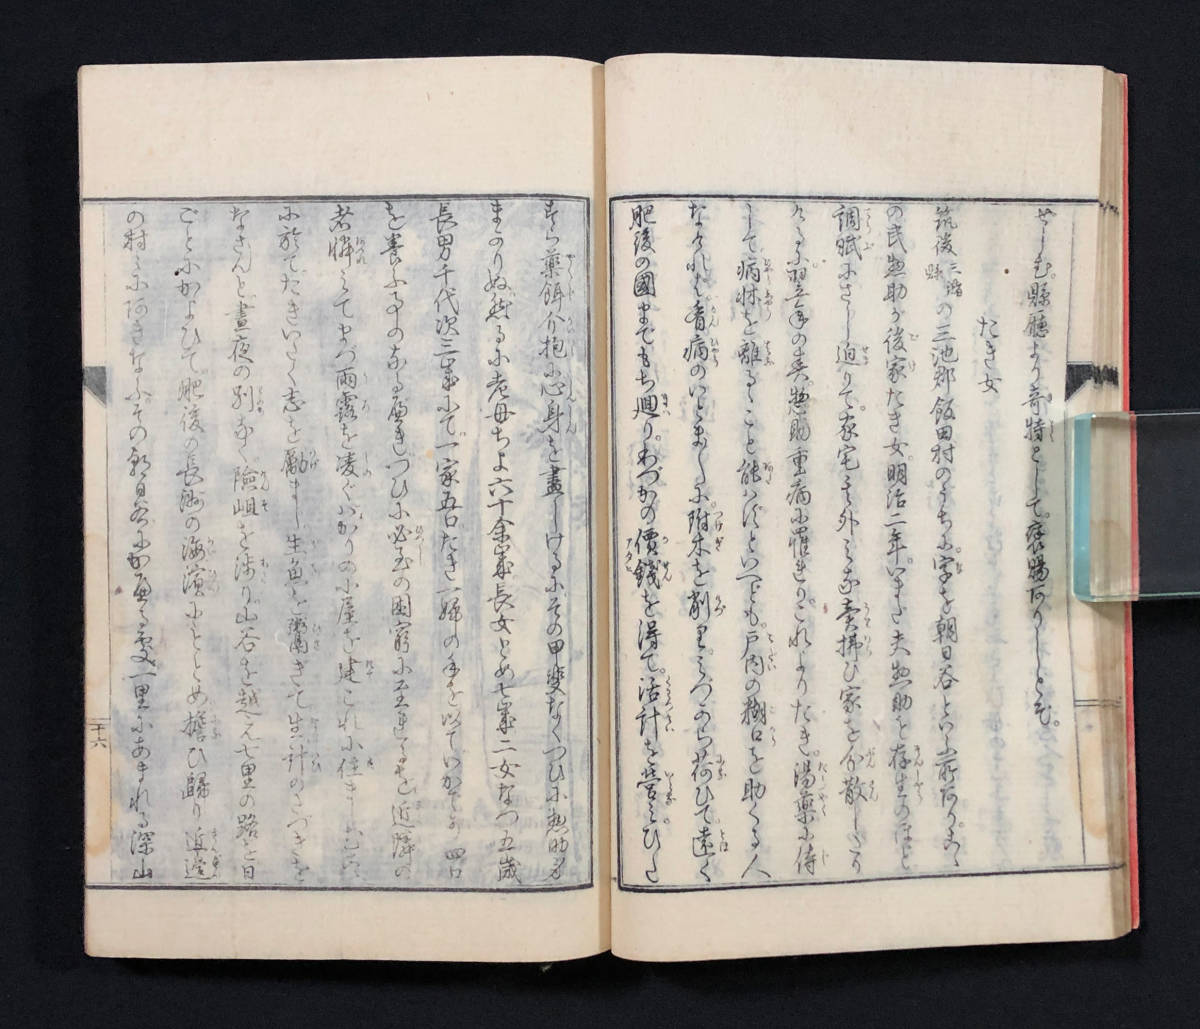 せしむ。縣廳より奇特として。褒賜ありしとぞ。
たき女
筑後三潴縣の三池郡飯田村のうちに。字を朝日谷といふ所あり。こゝ
の民惣助が後家たき女。明治二年。いまた夫惣助を存生のほど
調賦にさし迫りて。家宅その外みな賣拂ひ家を分散しさり
けるに。翌年の夏。惣助重病に罹れり。これよりたき。湯藥に侍
して。病牀を離るゝこと能はずといへども。戸内の糊口を助くる人
なければ。看病のいとまに。附木を削り。みづから荷ひて。遠く
肥後の國までもち廻り。わづかの價錢を得て。活計を營みひた
すら藥餌介抱に心身を盡しけるにその甲斐なくつひに惣助身
まかりぬ。然るに老母ちよ六十余歳長女とめ七歳二女なつ五歳
長男千代次三歳にて一家五口たき一婦の手を以ていかでか四口
を養ふ事のなる可きつひに必至の困窮に至れるを近隣の
者憐みてまづ雨露を凌ぐばかりの小屋を建これに住ましむ
に於てたきいたく志を勵まし生魚を鬻ぎて生計のたづきを
なさんと晝夜の別なく險岨を渉り山谷を越え七里の路を日
ごとにかよひて肥後の長洲の海濱にもとめ擔ひ歸り近邊
の村々にあきなふその
一里にあまれる深山
二十六